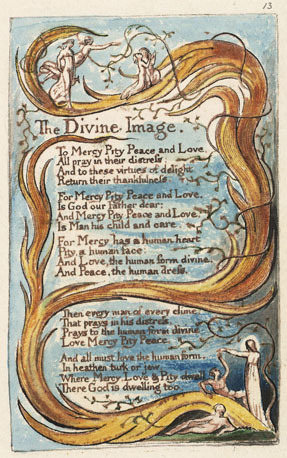 13
The Divine Image.
To Mercy Pity Peace and Love,
All pray in their distress
And to these virtues of delight
Return their thankfulness
For Mercy Pity Peace and Love,
Is God our father dear:
And Mercy Pity Peace and Love,
Is Man his child and care.
For Mercy has a human heart
Pity, a human face:
And Love, the human form divine,
And Peace, the human dress.
Then every man of every clime,
That prays in his distress,
Prays to the human form divine
Love Mercy Pity Peace.
And all must love the human form,
In heathen, turk or jew.
Where Mercy, Love & Pity dwell,
There God is dwelling too